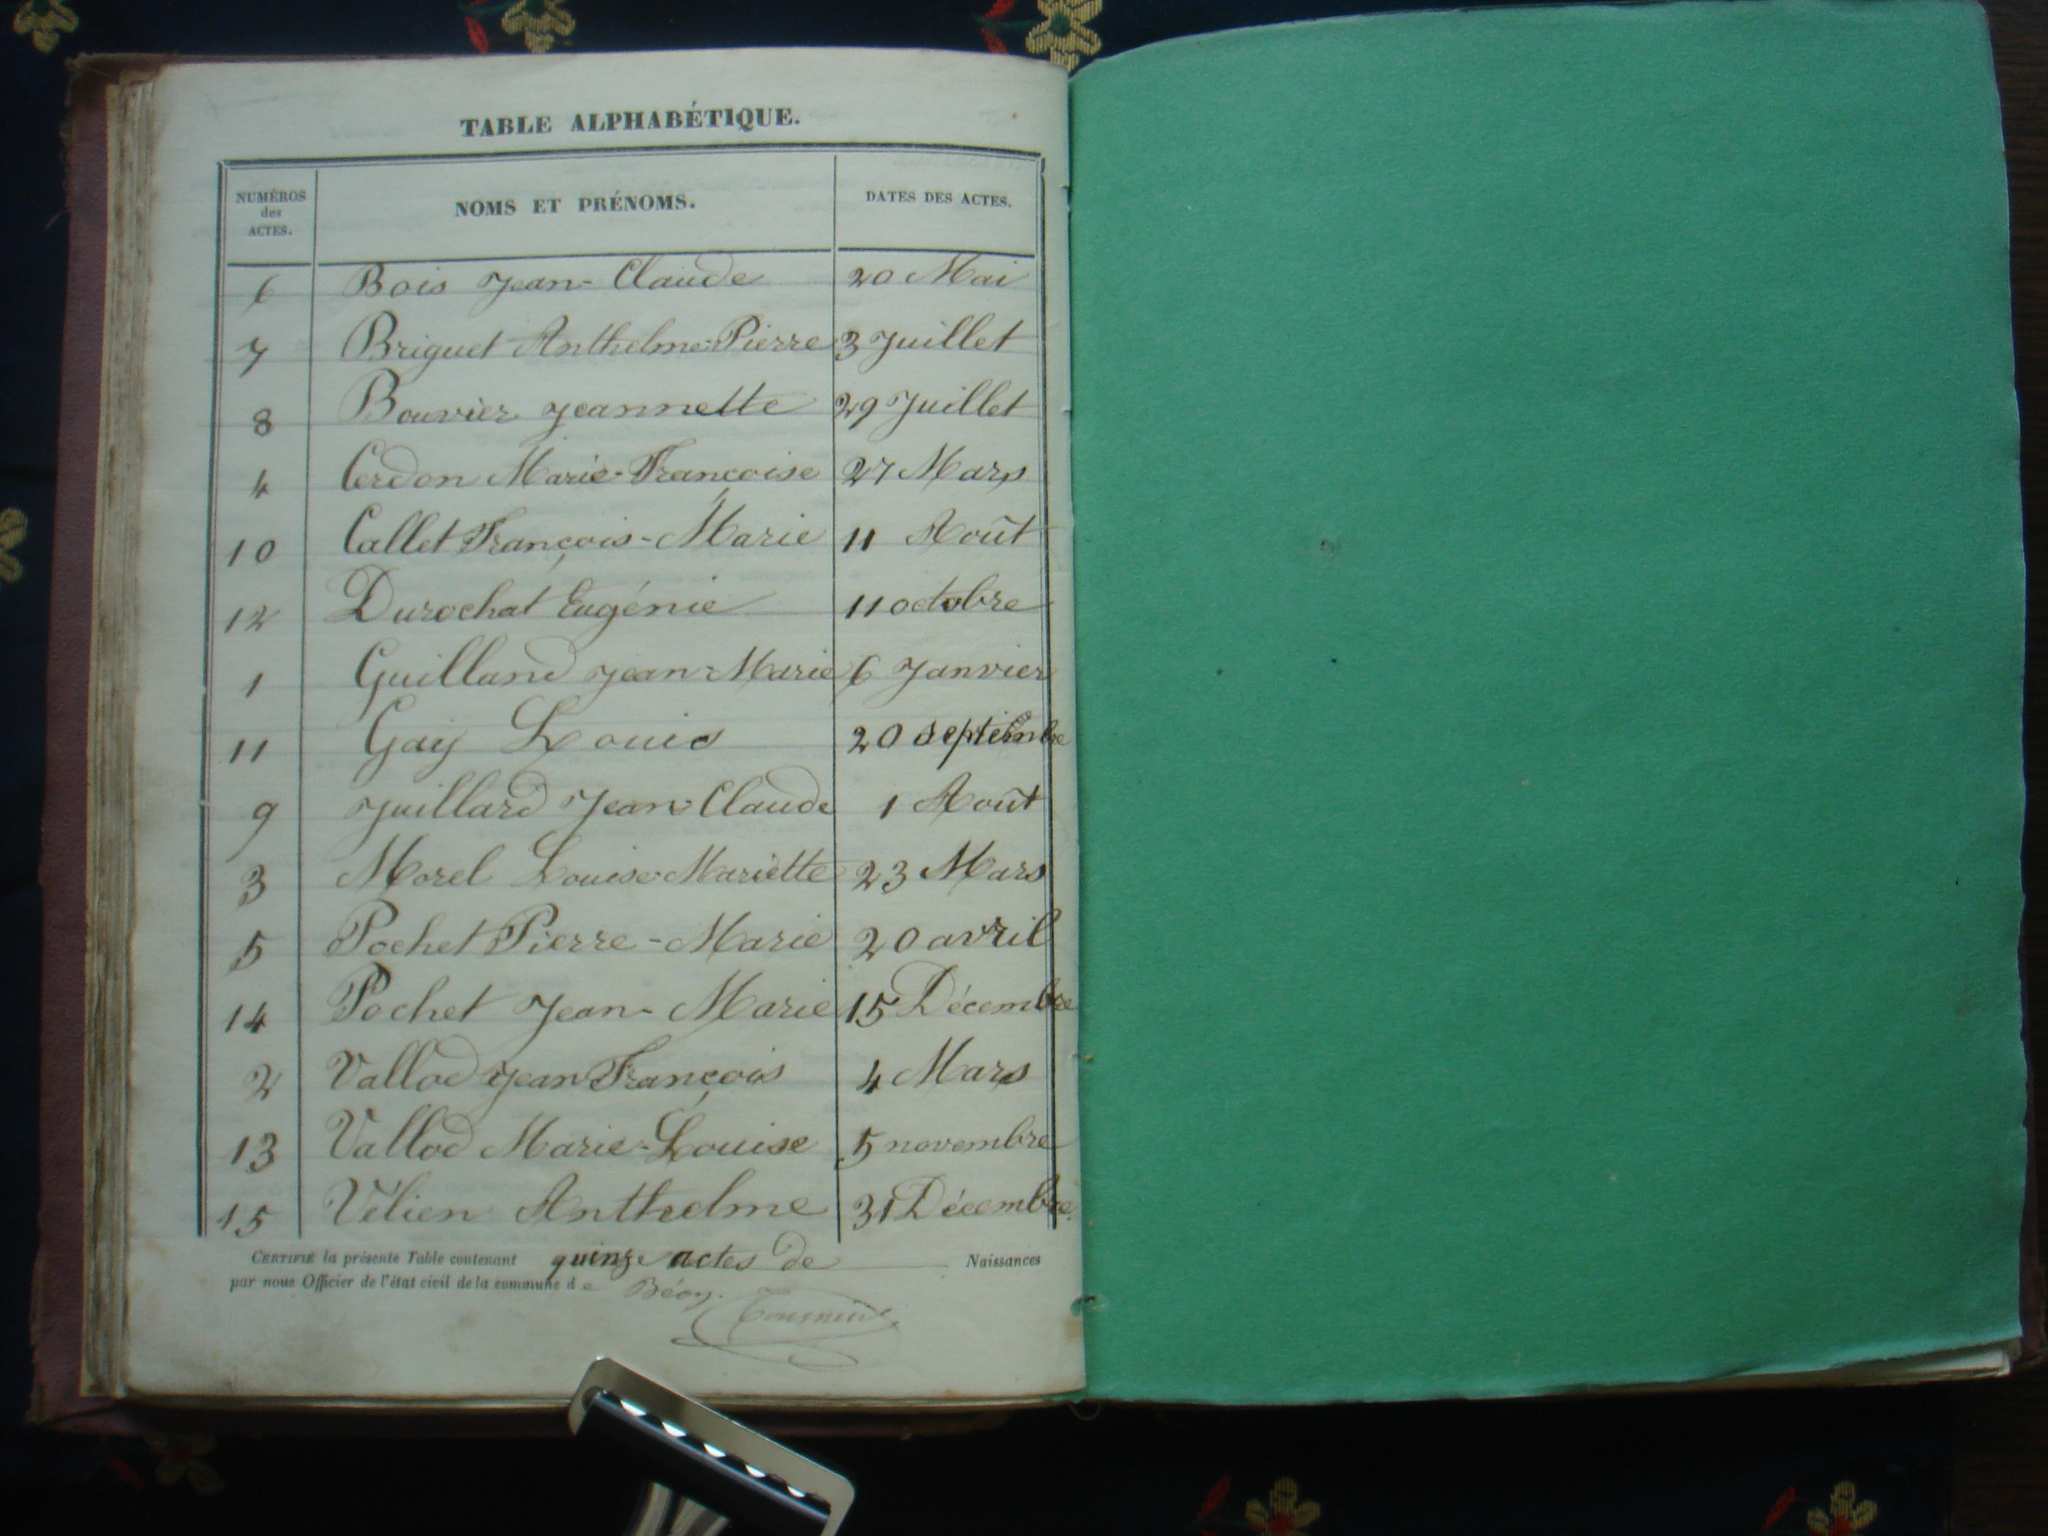 TABLE ALPHABÉTIQUE.
NUMÉROS des ACTES. NOMS ET PRÉNOMS. DATES DES ACTES.
6 Bois Jean-Claude 20 Mai
7 Briguet Anthelme-Pierre 3 Juillet
8 Bouvier Jeannette 29 Juillet
4 Cerdon Marie-Françoise 27 Mars
10 Callet François-Marie 11 Août
12 Durochat Eugénie 11 octobre
1 Guilland Jean-Marie 6 Janvier
11 Gay Louis 20 septembre
9 Juillard Jean-Claude 1 Août
3 Morel Louise-Mariette 23 Mars
5 Pochet Pierre-Marie 20 avril
14 Pochet Jean-Marie 15 Décembre
2 Vallod Jean François 4 Mars
13 Vallod Marie-Louise 5 novembre
15 Vélien Anthelme 31 Décembre
CERTIFIÉ la présente Table contenant quinze actes de Naissances
par nous Officier de l'état civil de la commune de Béon.